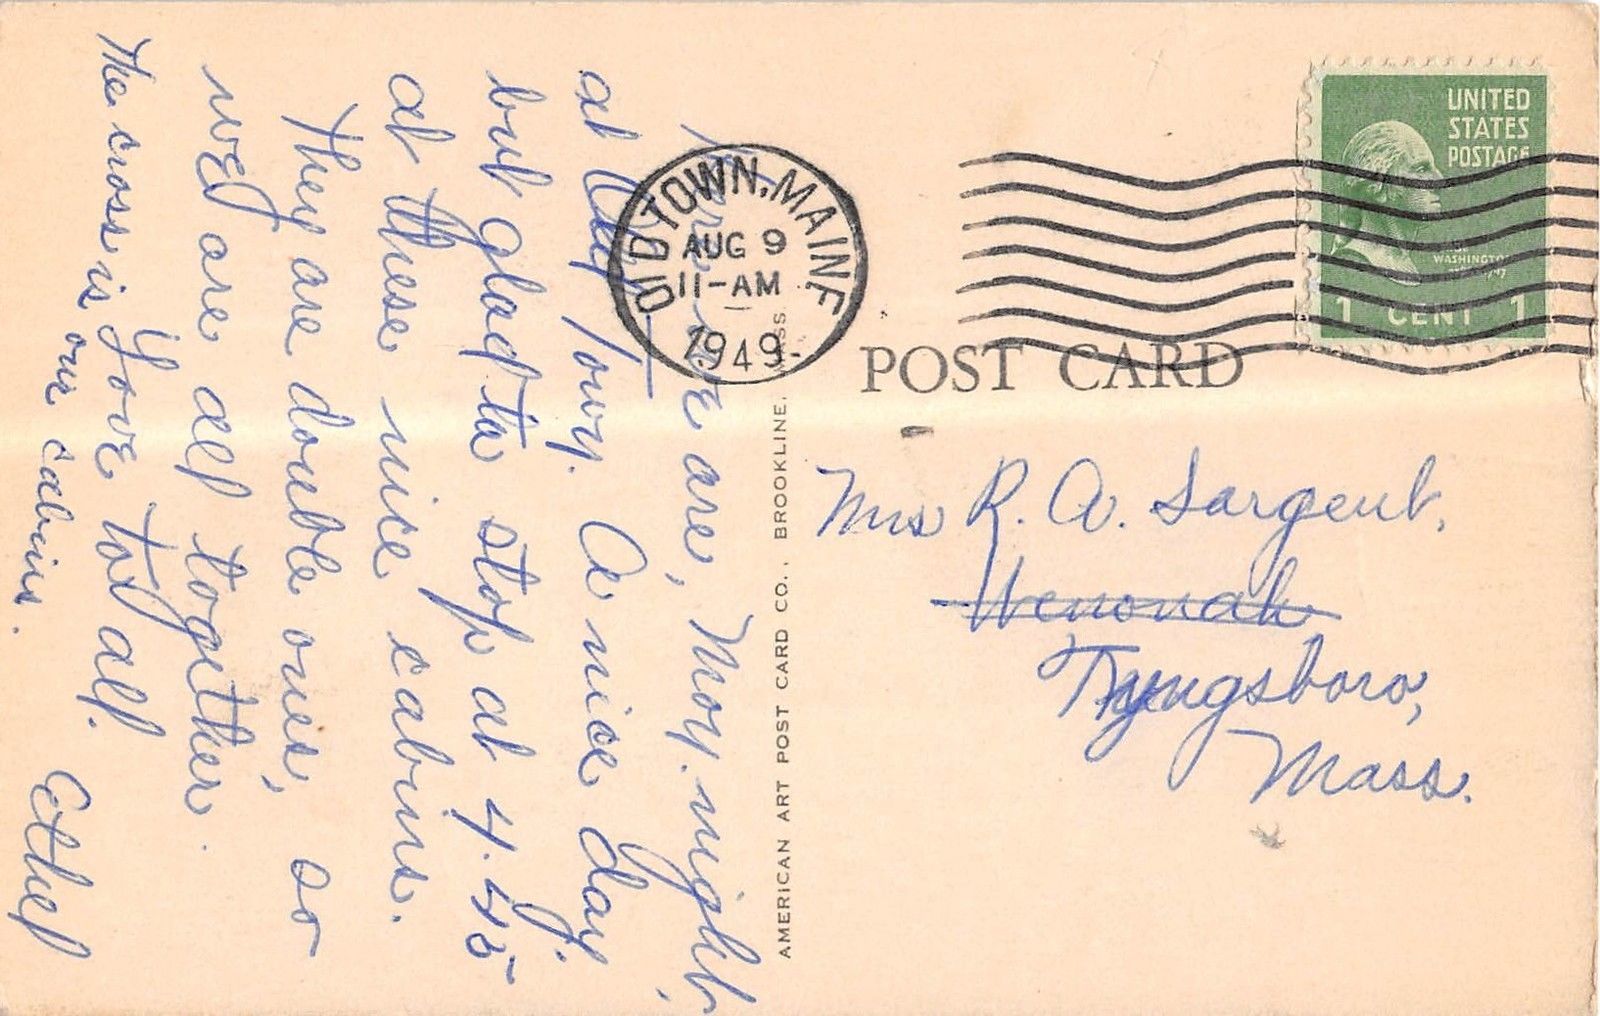 Here we are, Mon. night,
at Old Town. A nice day
but glad to stop at 4.45
at these nice cabins.
They are double ones, so
we are all together.
Love to all.
Ethel
The cross is our cabin.
OLD TOWN, MAINE
AUG 9
11-AM
1949
UNITED
STATES
POSTAGE
WASHINGTON
1 CENT 1
POST CARD
AMERICAN ART POST CARD CO., BROOKLINE, MASS.
Mrs R. A. Sargent,
Wenonah
Tyngsboro,
Mass.